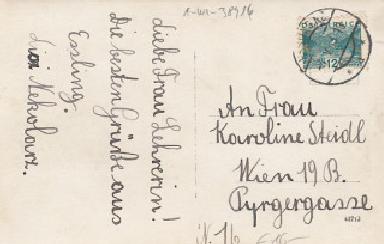 Liebe Frau Lehrerin!
Die besten Grüße aus
Essling.
Nekolarz.
ÖSTERREICH
12
An Frau
Karoline Steidl
Wien 19 B.
Pyrgergasse
N. 16